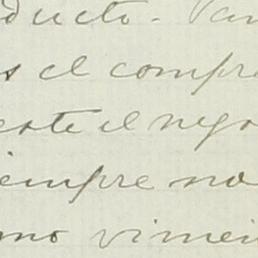 ducto. Va
s el compr
este el nego
iempre no
mo vimei